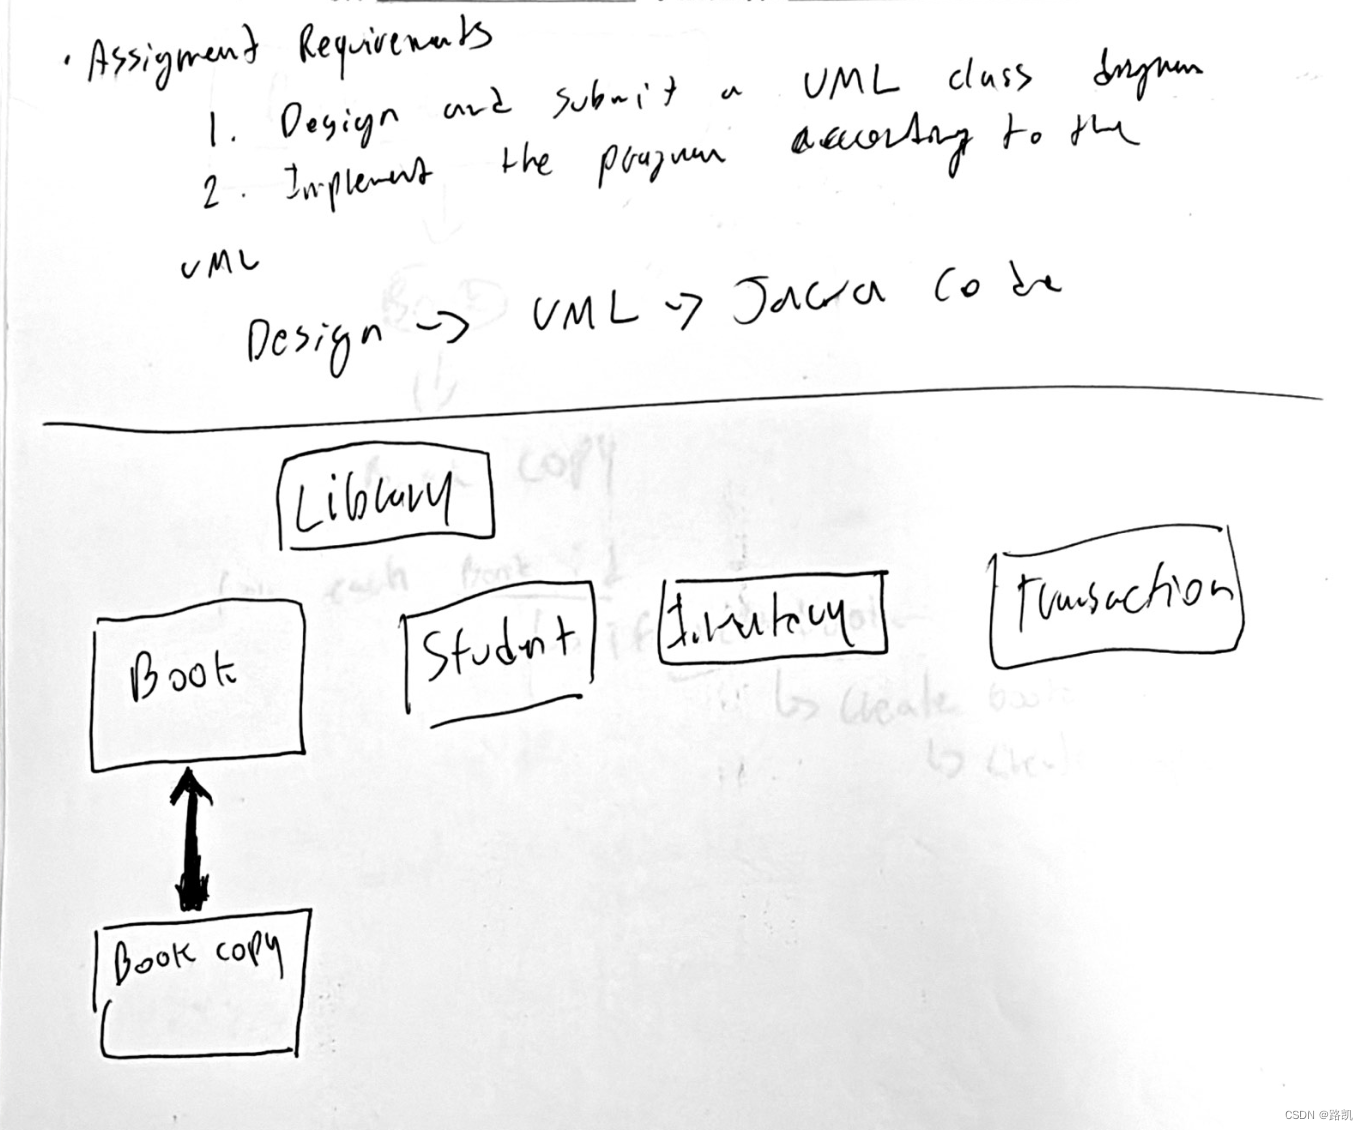 · Assigment Requirements
1. Design and submit a UML class
2. Implement the program according to the
UML
Design -> UML -> Java Code
Library
Book
Student
Inventory
Transaction
Book copy
copy
each Book
create
CSDN @路凯